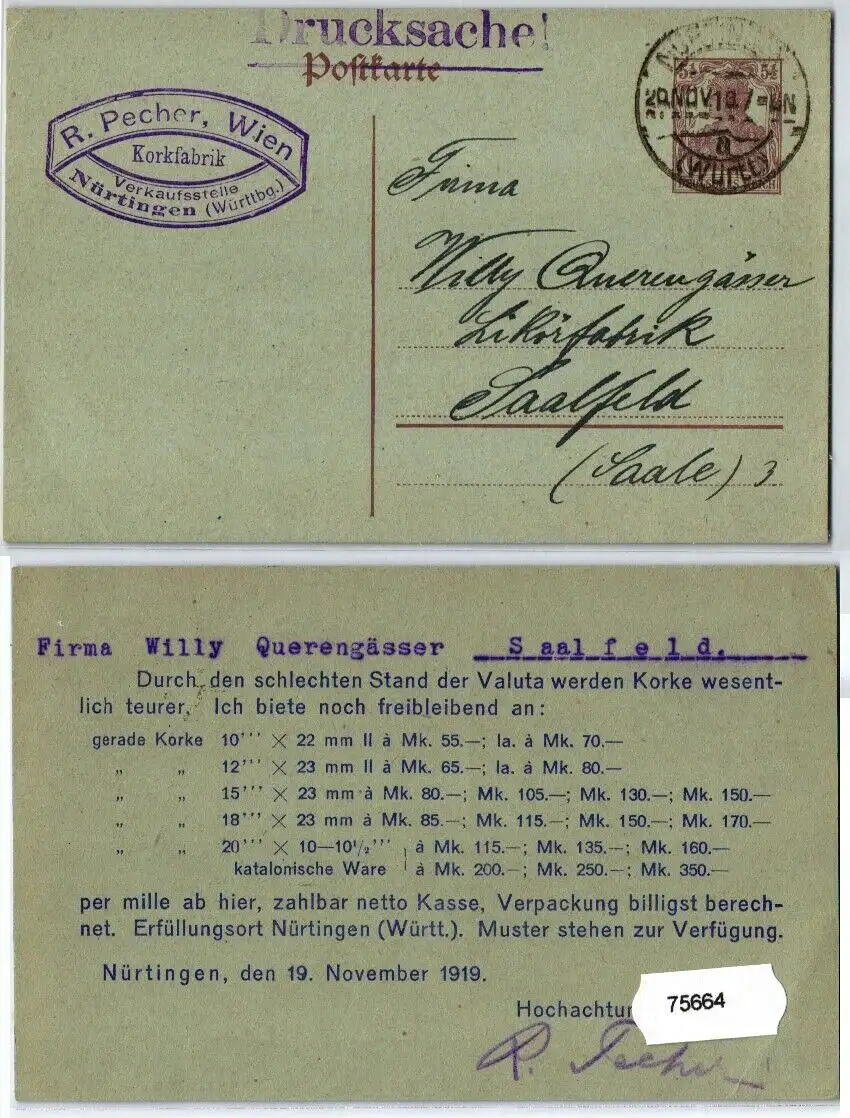 Drucksache!
Postkarte
R. Pecher, Wien
Korkfabrik
Verkaufsstelle
Nürtingen (Württbg.)
5¼ 5¼
NOV. 19. 7-8N
a
Firma
Willy Querengässer
Likörfabrik
Saalfeld
(Saale) 3
Firma Willy Querengässer Saalfeld.
Durch den schlechten Stand der Valuta werden Korke wesent-
lich teurer. Ich biete noch freibleibend an:
gerade Korke 10''' × 22 mm II à Mk. 55.—; Ia. à Mk. 70.—
„ „ 12''' × 23 mm II à Mk. 65.—; Ia. à Mk. 80.—
„ „ 15''' × 23 mm à Mk. 80.—; Mk. 105.—; Mk. 130.—; Mk. 150.—
„ „ 18''' × 23 mm à Mk. 85.—; Mk. 115.—; Mk. 150.—; Mk. 170.—
„ „ 20''' × 10—10½''' à Mk. 115.—; Mk. 135.—; Mk. 160.—
katalonische Ware à Mk. 200.—; Mk. 250.—; Mk. 350.—
per mille ab hier, zahlbar netto Kasse, Verpackung billigst berech-
net. Erfüllungsort Nürtingen (Württ.). Muster stehen zur Verfügung.
Nürtingen, den 19. November 1919.
Hochachtu
75664
R. Pecher